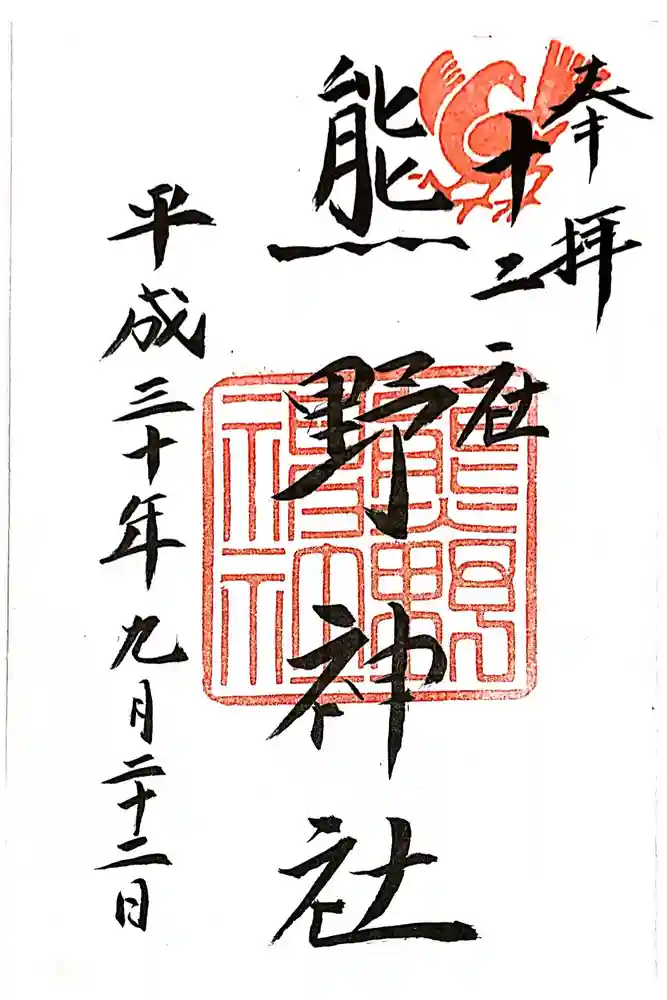 奉拝
十二社
熊野神社
平成三十年九月二十二日